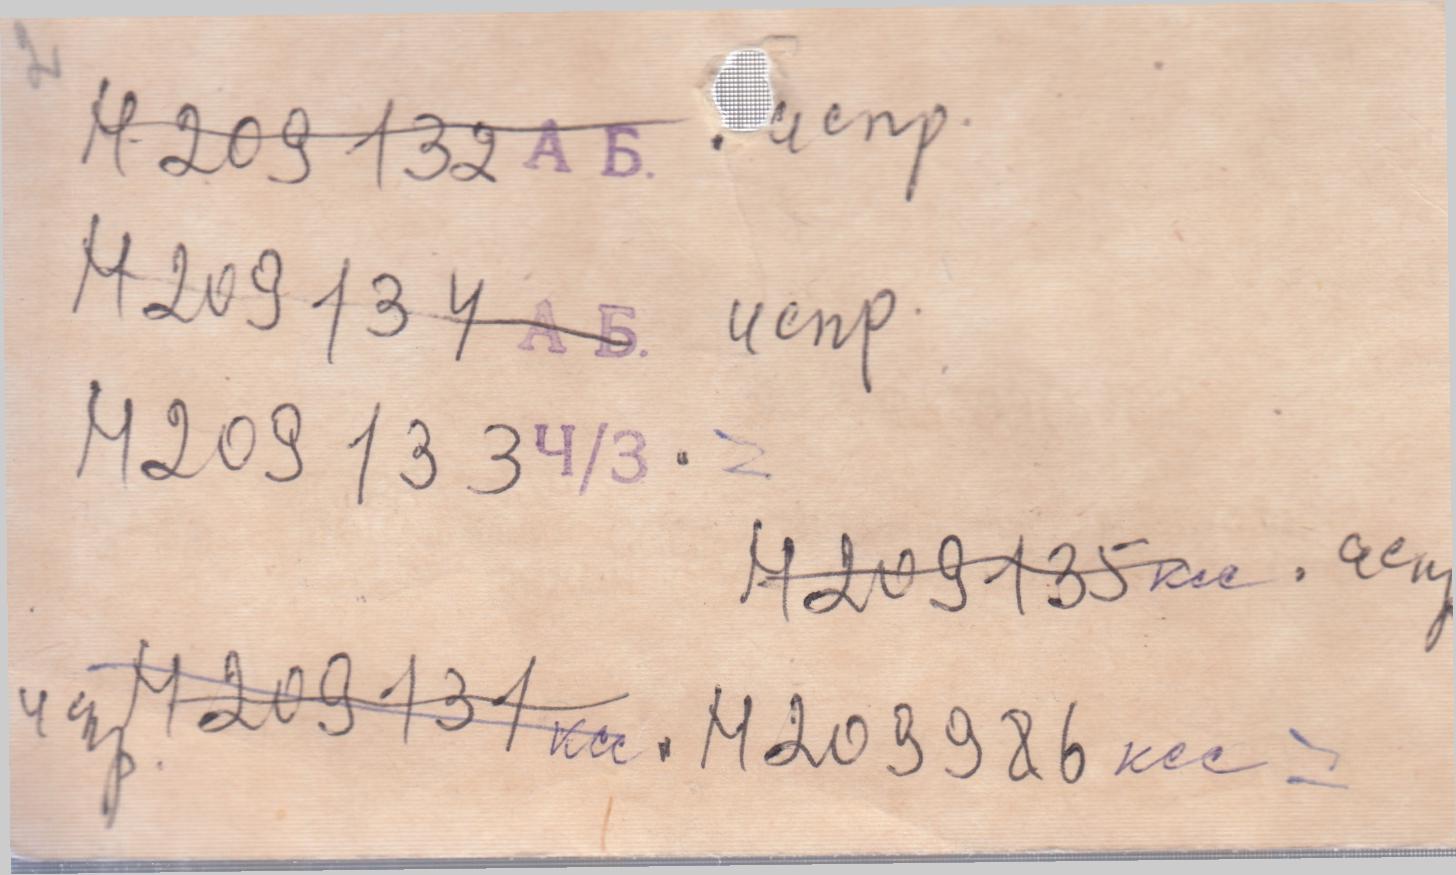 2
М209132 А Б. . испр.
М209134 А Б. испр.
М209133 Ч/З . =
М209135 ксс . испр
испр. М209131 ксс . М209986 ксс =